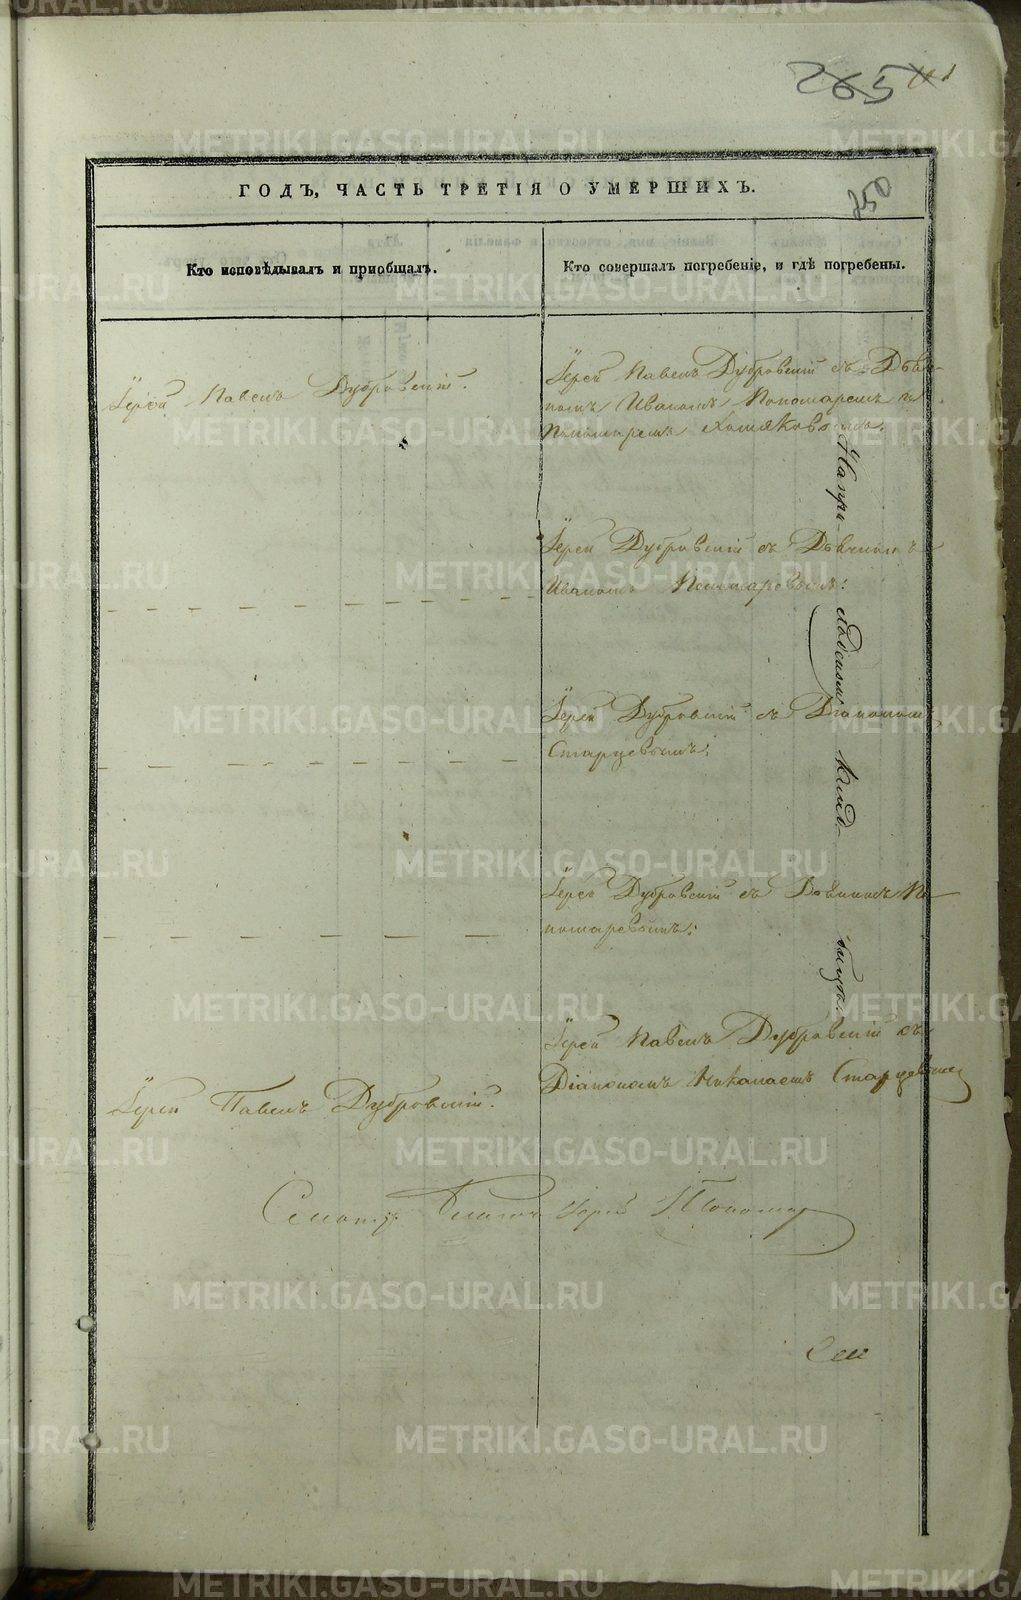 265
250
ГОДЪ, ЧАСТЬ ТРЕТІЯ О УМЕРШИХЪ.
Кто исповѣдывалъ и пріобщалъ.
Кто совершалъ погребеніе, и гдѣ погребены.
Іерей Павелъ Дубровскій.
Іерей Павелъ Дубровскій съ Дьяч-
комъ Иваномъ Пономаремъ и
Пономаремъ Хомяковымъ.
Іерей Дубровскій съ Дьячкомъ
Иваномъ Пономаревымъ:
Іерей Дубровскій съ Діакономъ
Старцевымъ:
Іерей Дубровскій съ Дьячкомъ По-
номаревымъ:
Іерей Павелъ Дубровскій.
Іерей Павелъ Дубровскій съ
Діакономъ Николаемъ Старцевымъ
На при-
ходскомъ
кладбищѣ
Іерей Пономар
METRIKI.GASO-URAL.RU